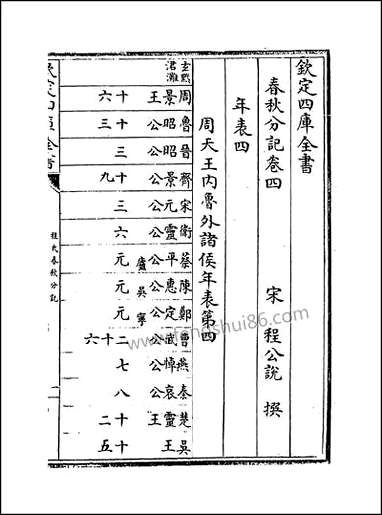 欽定四庫全書
春秋分記卷四 宋 程公說 撰
年表四
周天王內魯外諸侯年表第四
玄黓涒灘
周景王十六
魯昭公十三
晉昭公三
齊景公十九
宋元公三
衛靈公六
蔡平公廬元
陳惠公吳元
鄭定公寧元
曹武公二十六
燕悼公七
秦哀公八
楚靈王十二
吳王十五
欽定四庫全書
程氏春秋分記
www.fengshui86.com